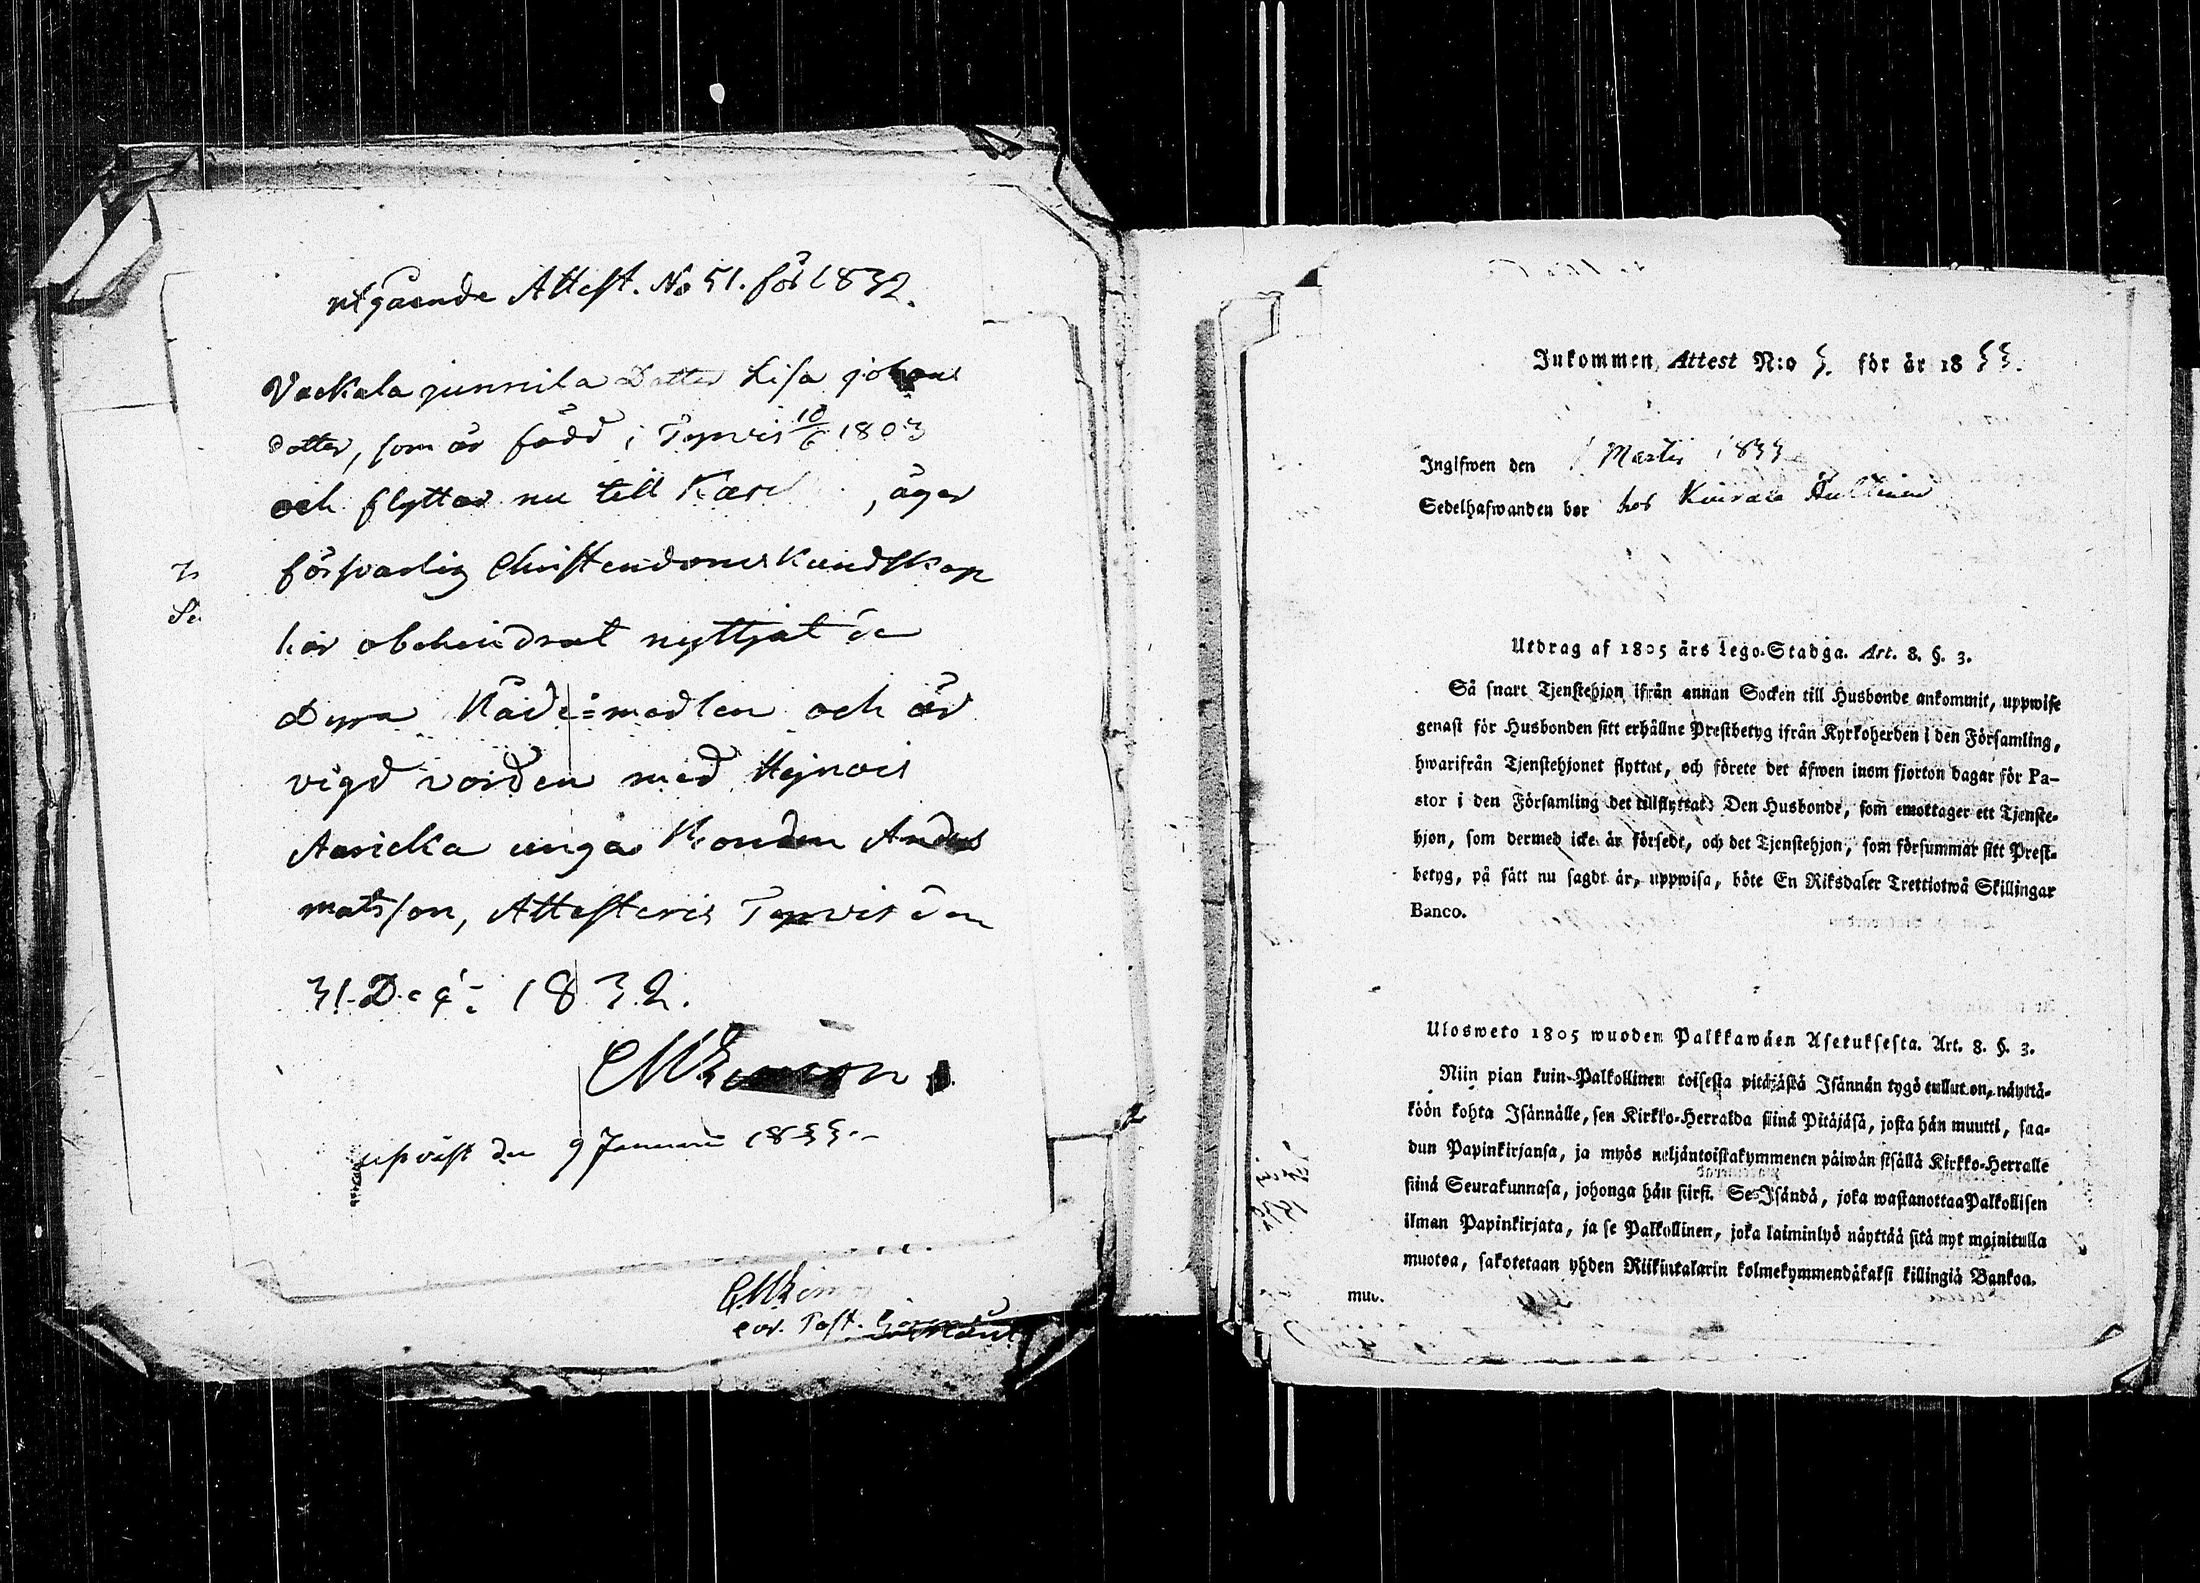 utgående Attest. No 51. för 1832.
Vackala junnila Dotter Lisa johans
dotter, som är född i Tyrvis 10/6 1803
och flyttar nu till , äger
försvarlig Christendoms Kundskap
har obehindrat nyttjat de
Dyra Nåde=medlen och är
vigd vorden med Hejnois
Aaricka unga Bonden Anders
matsson, Attesteris Tyrvis den
31. Dec: 1832.
upvist den 9 Januarii 1833.
Past.
Inkommen Attest N:o 3. för år 1833.
Inglfwen den 1 Martii 1833
Sedelhafwanden bor hos
Utdrag af 1805 års Lego-Stadga. Art. 8. §. 3.
Så snart Tjenstehjon ifrån annan Socken till Husbonde ankommit, uppwise
genast för Husbonden sitt erhållne Prestbetyg ifrån Kyrkoherden i den Församling,
hwarifrån Tjenstehjonet flyttat, och förete det äfwen inom fjorton dagar för Pa-
stor i den Församling det tillflyttat: Den Husbonde, som emottager ett Tjenste-
hjon, som dermed icke är försedt, och det Tjenstehjon, som försummar sitt Prest-
betyg, på sätt nu sagdt är, uppwisa, böte En Riksdaler Trettiotwå Skillingar
Banco.
Ulosweto 1805 wuoden Palkkawäen Asetuksesta. Art. 8. §. 3.
Niin pian kuin Palkollinen toisesta pitäjästä Isännän tygö tullut on, näyttä-
köön kohta Isännälle, sen Kirkko-Herralda siinä Pitäjäsä, josta hän muutti, saa-
dun Papinkirjansa, ja myös neljäntoistakymmenen päiwän sisällä Kirkko-Herralle
siinä Seurakunnasa, johonga hän siirsi. Se Isändä, joka wastanottaa Palkollisen
ilman Papinkirjata, ja se Palkollinen, joka laiminlyö näyttää sitä nyt majnitulla
muotoa, sakotetaan yhden Riikintalarin kolmekymmendäkaksi killingiä Bankoa.